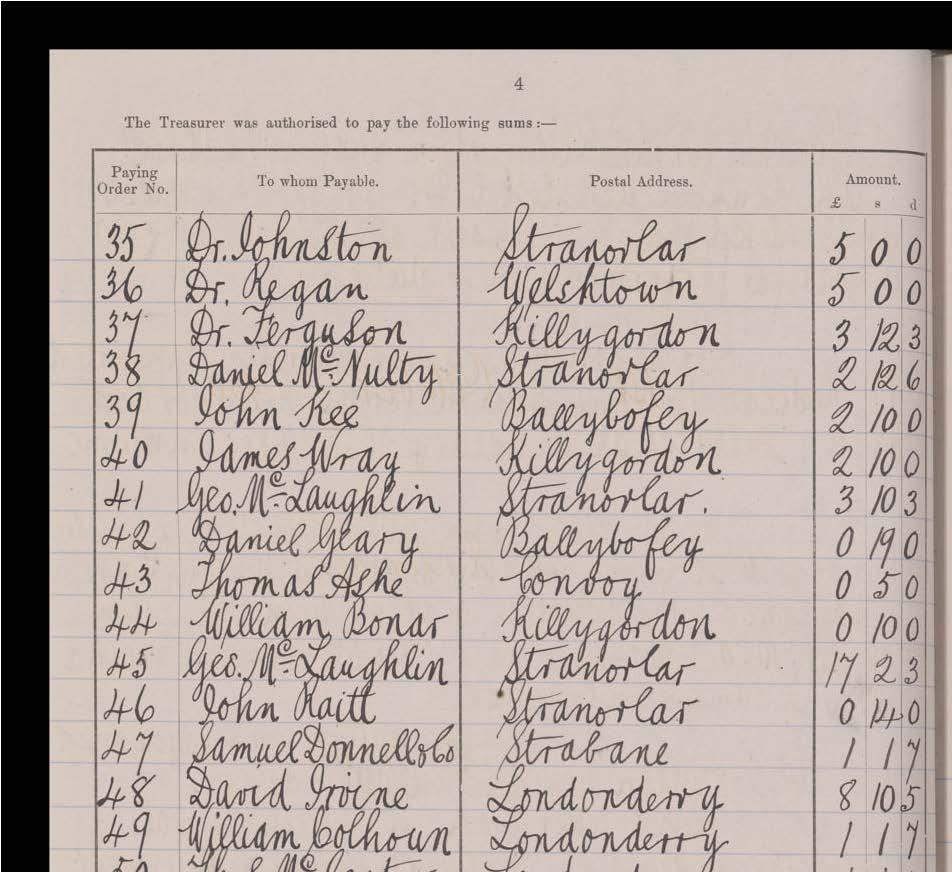 4
The Treasurer was authorised to pay the following sums :—
Paying Order No. To whom Payable. Postal Address. Amount.
£ s d
35 Dr. Johnston Stranorlar 5 0 0
36 Dr. Regan Welshtown 5 0 0
37 Dr. Ferguson Killygordon 3 12 3
38 Daniel McNulty Stranorlar 2 12 6
39 John Kee Ballybofey 2 10 0
40 James Wray Killygordon 2 10 0
41 Geo. McLaughlin Stranorlar. 3 10 3
42 Daniel Geary Ballybofey 0 19 0
43 Thomas Ashe Convoy 0 5 0
44 William Bonar Killygordon 0 10 0
45 Geo. McLaughlin Stranorlar 17 2 3
46 John Raitt Stranorlar 0 14 0
47 Samuel Donnell & Co Strabane 1 1 7
48 David Irvine Londonderry 8 10 5
49 William Colhoun Londonderry 1 1 7